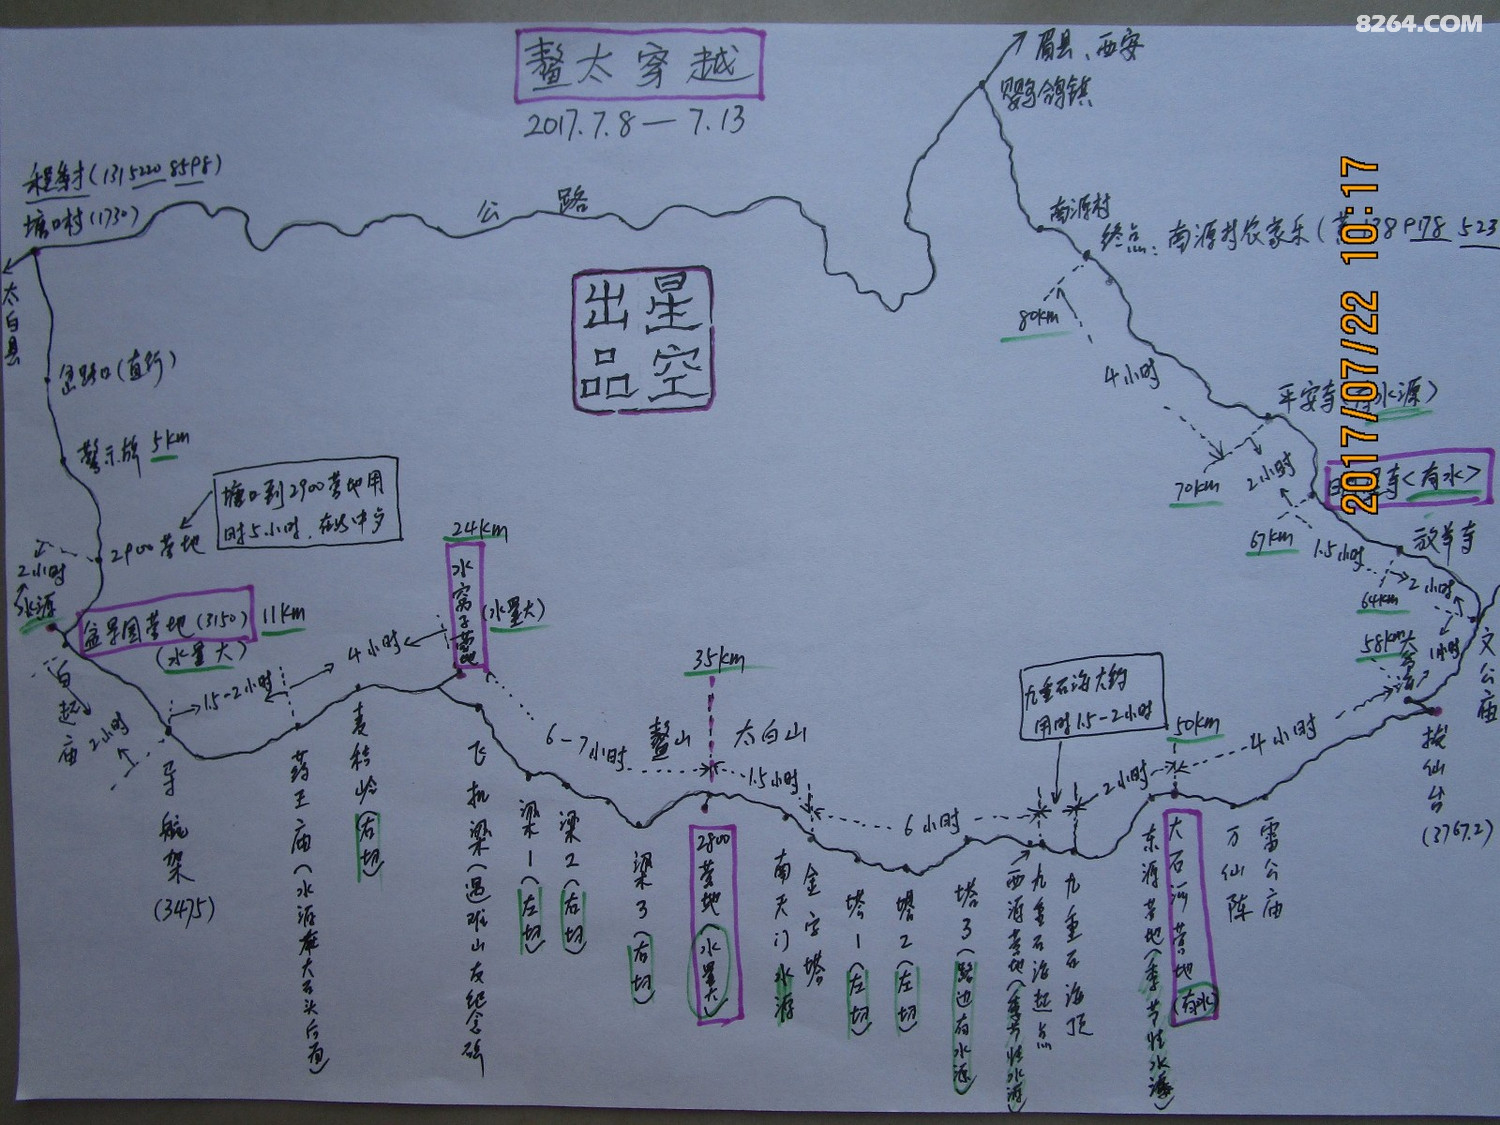 8264.COM
鳌太穿越
2017.7.8—7.13
眉县、西安
鹦鸽镇
塘口村(1730)
太白县
公路
南源村
终点:南源村农家乐(
80km
4小时
出星
品空
岔路口(直行)
警示牌 5km
塘口到2900营地用
时5小时,在此中歺
2900营地
2小时
水源
盆景园营地(3150) 11km
(水量大)
白起庙
2小时
导航架
(3475)
1.5-2小时
药王庙(水源在大石头后面)
4小时
麦秸岭(右切)
24km
水窝子营地
(水量大)
6-7小时
飞机梁(遇难山友纪念碑
梁1(左切)
梁2(右切)
梁3(右切)
鳌山
35km
太白山
2800营地(水量大)
1.5小时
南天门水源
金字塔
6小时
塔1(左切)
塔2(左切)
塔3(路边有水源)
西源营地(季节性水源)
九重石海起点
九重石海大约
用时1.5-2小时
九重石海顶
2小时
50km
东源营地(季节性水源)
大石河营地(有水)
4小时
万仙阵
雷公庙
拔仙台
(3767.2)
58km
大爷海
1小时
文公庙
2小时
64km
放羊寺
1.5小时
67km
寺<有水>
2小时
70km
平安寺
水源)
2017/07/22 10:17